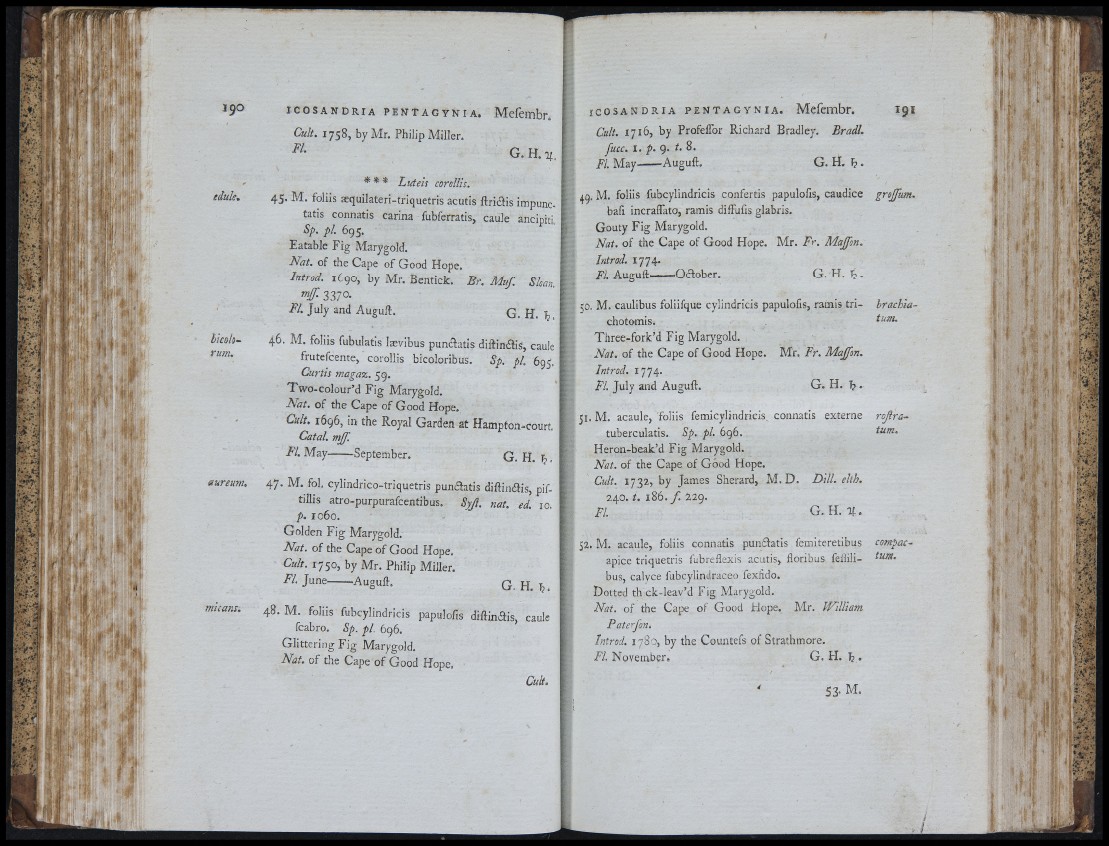 190 ICOSANDRIA PENTAGYNIA. Meſembr.
Cult. 1758, by Mr. Philip Miller.
Fl. G. H. ♃.
*** Luteis corollis.
edule. 45. M. foliis æquilateri-triquetris acutis ſtrictis impunc-
tatis connatis carina ſubſerratis, caule ancipiti.
Sp. pl. 695.
Eatable Fig Marygold.
Nat. of the Cape of Good Hope.
Introd. 1690, by Mr. Bentick. Br. Muſ. Sloan.
mſſ. 3370.
Fl. July and Auguſt. G. H. ♄.
bicolo- 46. M. foliis ſubulatis lævibus punctatis diſtinctis, caule
rum. fruteſcente, corollis bicoloribus. Sp. pl. 695.
Curtis magaz. 59.
Two-colour'd Fig Marygold.
Nat. of the Cape of Good Hope.
Cult. 1696, in the Royal Garden at Hampton-court.
Catal. mſſ.
Fl. May——September. G. H. ♄.
aureum. 47. M. fol. cylindrico-triquetris punctatis diſtinctis, piſ-
tillis atro-purpuraſcentibus. Syſt. nat. ed. 10.
p. 1060.
Golden Fig Marygold.
Nat. of the Cape of Good Hope.
Cult. 1750, by Mr. Philip Miller.
Fl. June——Auguſt. G. H. ♄.
micans. 48. M. foliis ſubcylindricis papuloſis diſtinctis, caule
ſcabro. Sp. pl. 696.
Glittering Fig Marygold.
Nat. of the Cape of Good Hope.
Cult.
ICOSANDRIA PENTAGYNIA. Meſembr. 191
Cult. 1716, by Profeſſor Richard Bradley. Bradl.
ſucc. 1. p. 9. t. 8.
Fl. May——Auguſt. G. H. ♄.
49. M. foliis ſubcylindricis confertis papuloſis, caudice groſſum.
baſi incraſſato, ramis diffuſis glabris.
Gouty Fig Marygold.
Nat. of the Cape of Good Hope. Mr. Fr. Maſſon.
Introd. 1774.
Fl. Auguſt——October. G. H. ♄.
50. M. caulibus foliiſque cylindricis papuloſis, ramis tri- brachia-
chotomis. tum.
Three-fork'd Fig Marygold.
Nat. of the Cape of Good Hope. Mr. Fr. Maſſon.
Introd. 1774.
Fl. July and Auguſt. G. H. ♄.
51. M. acaule, foliis ſemicylindricis connatis externe roſtra-
tuberculatis. Sp. pl. 696. tum.
Heron-beak'd Fig Marygold.
Nat. of the Cape of Good Hope.
Cult. 1732, by James Sherard, M. D. Dill. elth.
240. t. 186. f. 229.
Fl. G. H. ♃.
52. M. acaule, foliis connatis punctatis ſemiteretibus compac-
apice triquetris ſubreflexis acutis, floribus ſeſſili- tum.
bus, calyce ſubcylindraceo ſexfido.
Dotted thick-leav'd Fig Marygold.
Nat. of the Cape of Good Hope. Mr. William
Paterſon.
Introd. 1780, by the Counteſs of Strathmore.
Fl. November. G. H. ♄.
53. M.